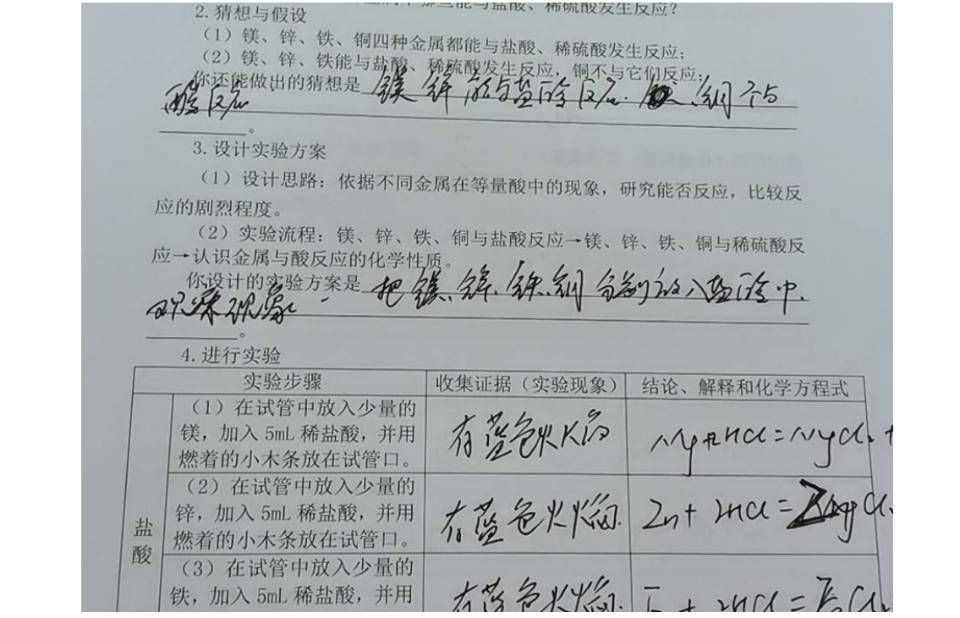 哪些能与盐酸、稀硫酸发生反应？
2.猜想与假设
（1）镁、锌、铁、铜四种金属都能与盐酸、稀硫酸发生反应；
（2）镁、锌、铁能与盐酸、稀硫酸发生反应，铜不与它们反应；
你还能做出的猜想是 镁 锌 能与盐酸反应. 铜不与
酸反应
。
3.设计实验方案
（1）设计思路：依据不同金属在等量酸中的现象，研究能否反应，比较反
应的剧烈程度。
（2）实验流程：镁、锌、铁、铜与盐酸反应→镁、锌、铁、铜与稀硫酸反
应→认识金属与酸反应的化学性质。
你设计的实验方案是 把镁.锌.铁.铜分别放入盐酸中.
观察现象
。
4.进行实验
实验步骤 收集证据（实验现象） 结论、解释和化学方程式
（1）在试管中放入少量的
镁，加入 5mL 稀盐酸，并用
燃着的小木条放在试管口。
有蓝色火焰
Mg+2HCl=MgCl₂+
（2）在试管中放入少量的
锌，加入 5mL 稀盐酸，并用
燃着的小木条放在试管口。
有蓝色火焰.
Zn+2HCl=
盐酸
（3）在试管中放入少量的
铁，加入 5mL 稀盐酸，并用
有蓝色火焰.
Fe+2HCl=FeCl₂